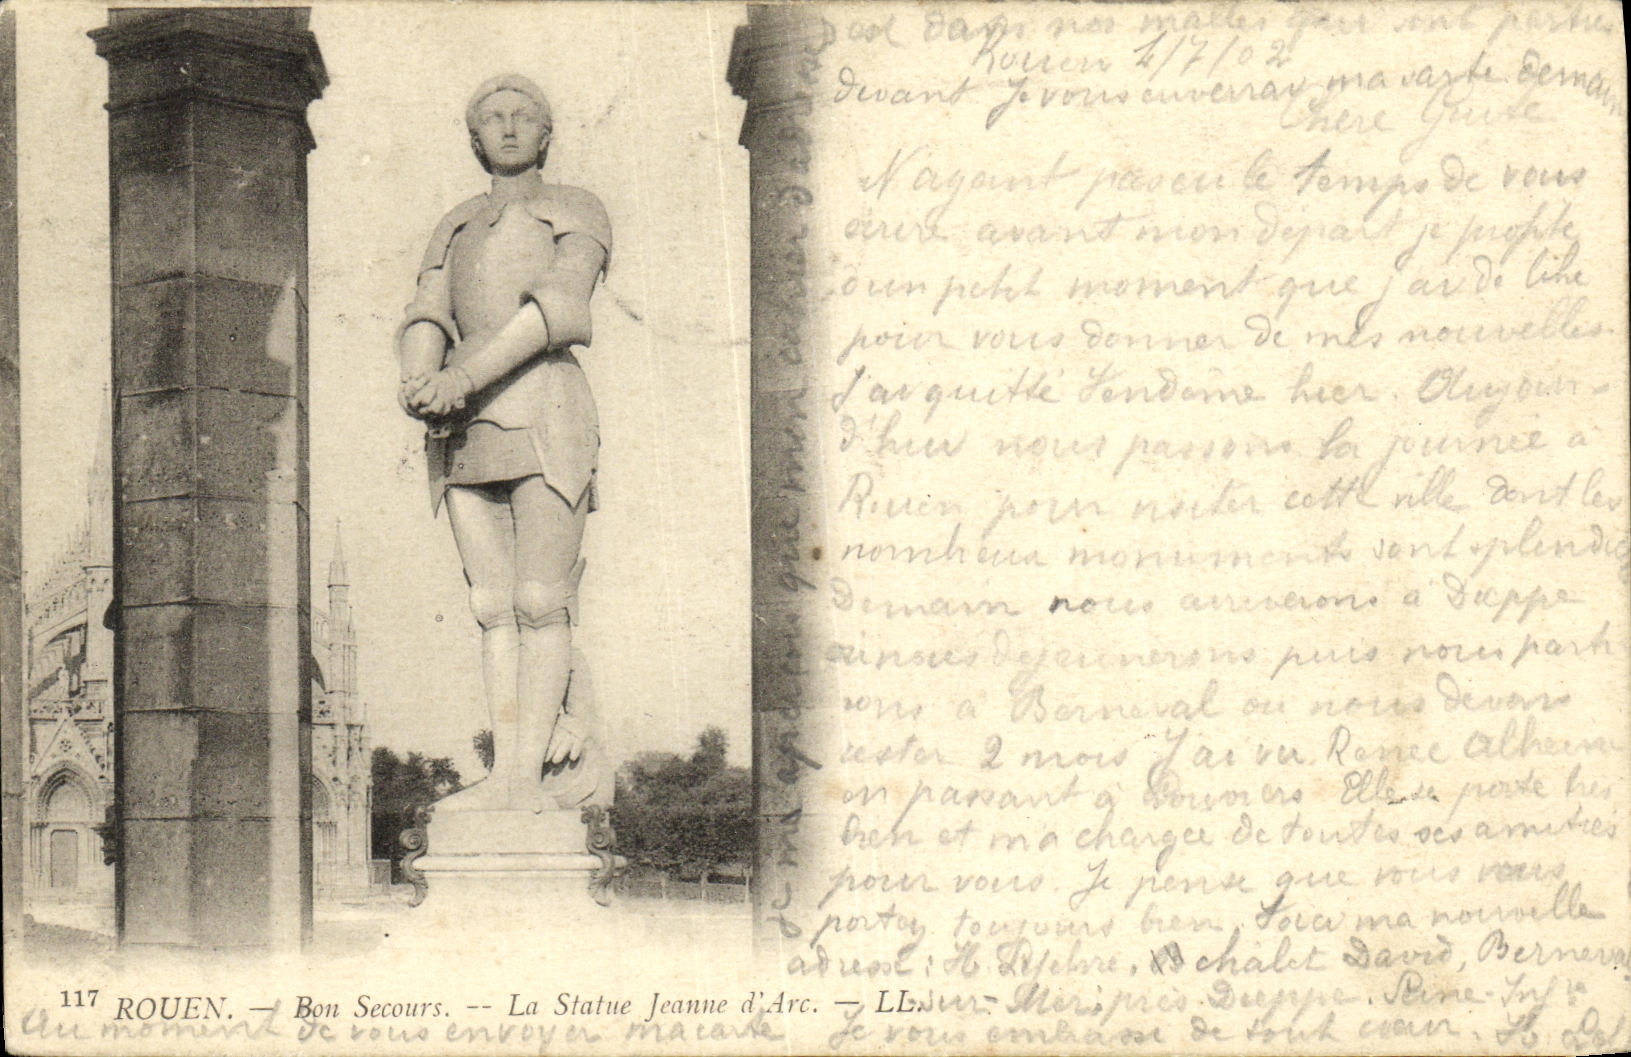 est dans nos malles qui sont parties
Rouen 4/7/02
devant. Je vous enverrai ma carte demain
Chère
N'ayant pas eu le temps de vous
écrire avant mon départ je profite
d'un petit moment que j'ai de libre
pour vous donner de mes nouvelles.
J'ai quitté Vendôme hier. Aujour-
d'hui nous passons la journée à
Rouen pour visiter cette ville dont les
nombreux monuments sont splendides
Demain nous arriverons à Dieppe
où nous déjeunerons puis nous parti
rons à Berneval où nous devons
rester 2 mois J'ai vu Renée
en passant à Elle se porte très
bien et m'a chargée de toutes ses amitiés
pour vous. Je pense que vous vous
portez toujours bien. Voici ma nouvelle
adresse : H. Lefebvre, chalet David, Berneval
sur-Mer près Dieppe. Seine-Infre
Je vous embrasse de tout cœur. H. Lef
Au moment de vous envoyer ma carte
je m'aperçois que mon cahier d'adresses
117 ROUEN. — Bon Secours. -- La Statue Jeanne d'Arc. — LL.